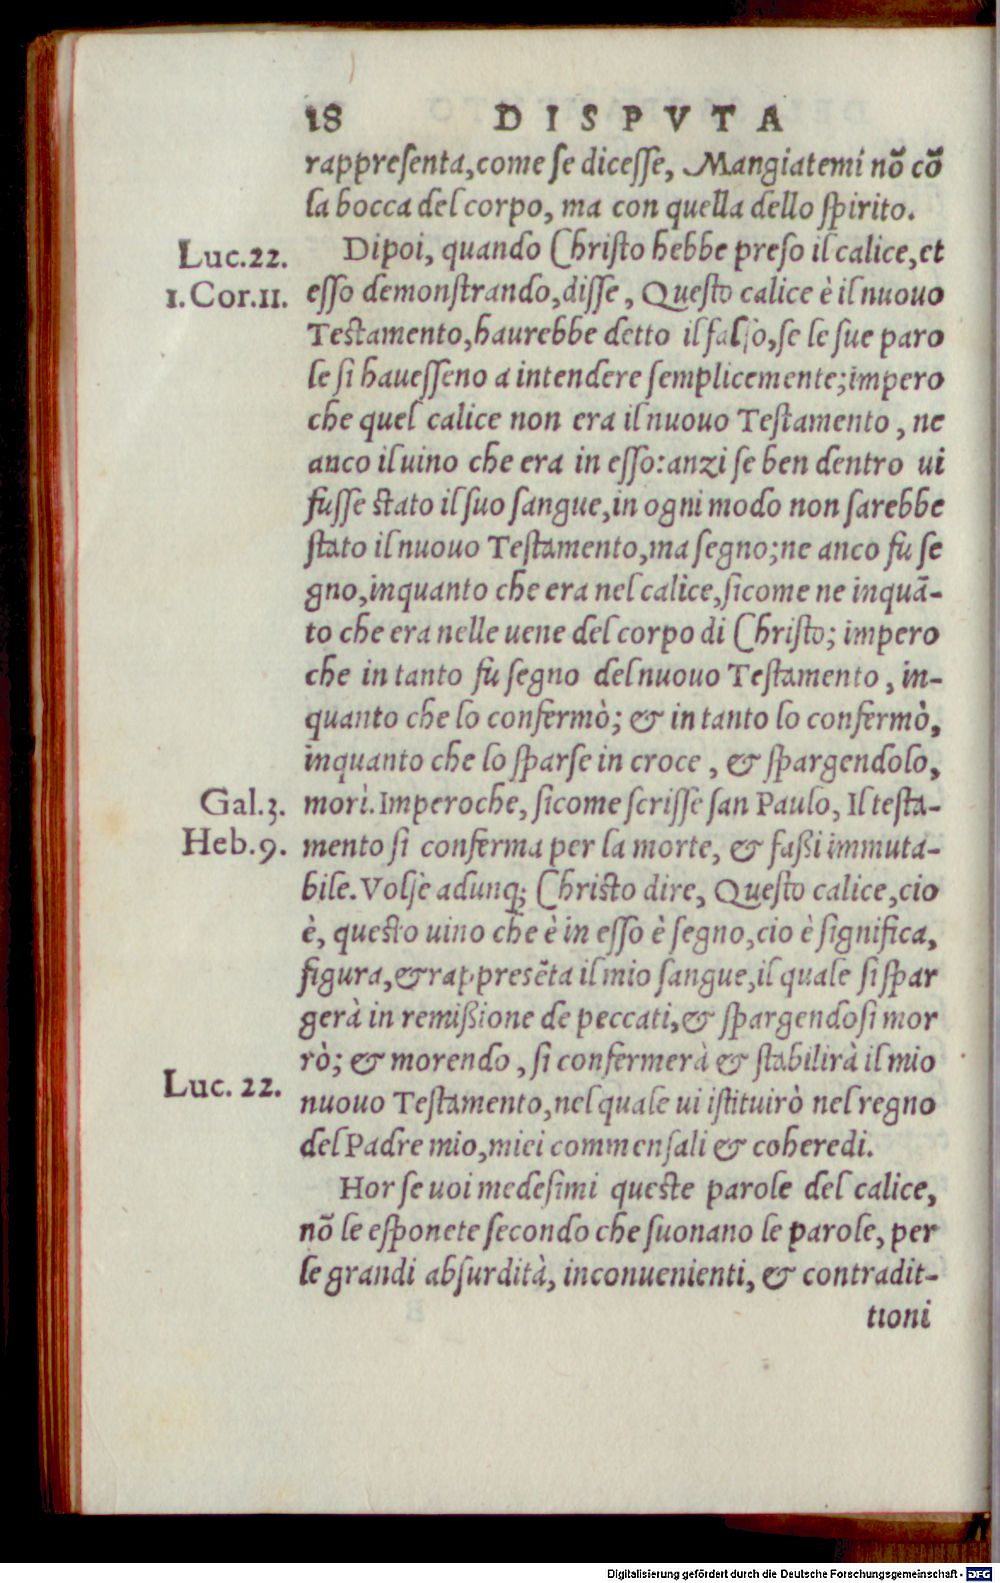 18 DISPVTA
rappresenta, come se dicesse, Mangiatemi nõ cõ
la bocca del corpo, ma con quella dello spirito.
Luc.22.
Dipoi, quando Christo hebbe preso il calice, et
1.Cor.11.
esso demonstrando, disse, Questo calice è il nuouo
Testamento, haurebbe detto il falso, se le sue paro
le si hauesseno a intendere semplicemente; impero
che quel calice non era il nuouo Testamento, ne
anco il uino che era in esso: anzi se ben dentro ui
fusse stato il suo sangue, in ogni modo non sarebbe
stato il nuouo Testamento, ma segno; ne anco fu se
gno, inquanto che era nel calice, sicome ne inquã-
to che era nelle uene del corpo di Christo; impero
che in tanto fu segno del nuouo Testamento, in-
quanto che lo confermò; & in tanto lo confermò,
inquanto che lo sparse in croce, & spargendolo,
Gal.3.
morì. Imperoche, sicome scrisse san Paulo, Il testa-
Heb.9.
mento si conferma per la morte, & faßi immuta-
bile. Volse adunq; Christo dire, Questo calice, cio
è, questo uino che è in esso è segno, cio è significa,
figura, & rappresẽta il mio sangue, il quale si spar
gerà in remißione de peccati, & spargendosi mor
rò; & morendo, si confermerà & stabilirà il mio
Luc. 22.
nuouo Testamento, nel quale ui istituirò nel regno
del Padre mio, miei commensali & coheredi.
Hor se uoi medesimi queste parole del calice,
nõ le esponete secondo che suonano le parole, per
le grandi absurdità, inconuenienti, & contradit-
tioni
Digitalisierung gefördert durch die Deutsche Forschungsgemeinschaft - DFG